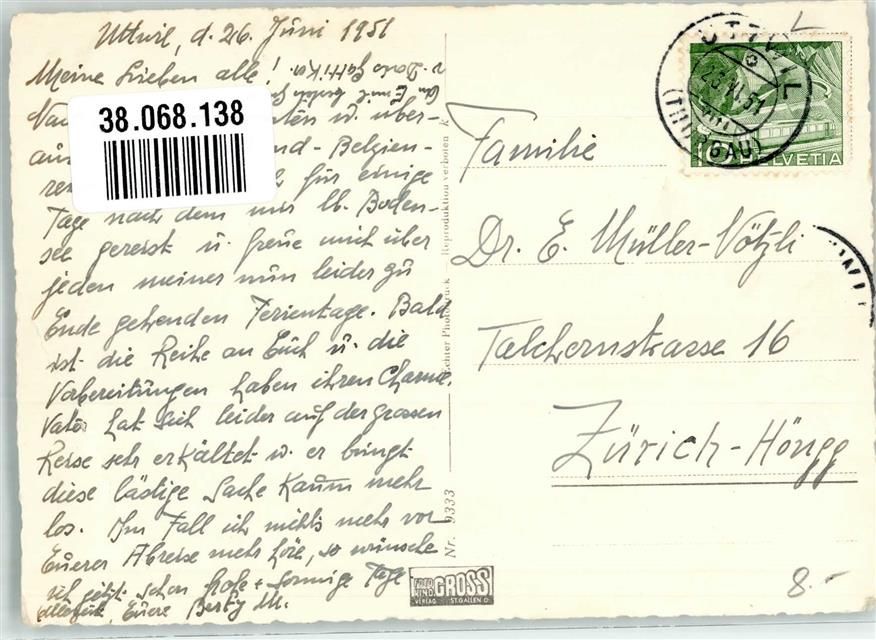 Uttwil, d. 26. Juni 1951
Meine Lieben alle!
38.068.138
u. über-
nd-Belgien-
für einige
Tage nach dem mir lb. Boden-
see gereist u. freue mich über
jeden meiner nun leider zu
Ende gehenden Ferientage. Bald
ist die Reihe an Euch u. die
Vorbereitungen haben ihren Charme.
Vater hat sich leider auf der grossen
Reise sehr erkältet u. er bringt
diese lästige Sache kaum mehr
los. Im Fall ich nichts mehr vor
Eurer Abreise mehr höre, so wünsche
ich jetzt schon frohe + sonnige Tage
Euere Berty M.
Reproduktion verboten
Nr. 9333
FOTO
KINO
GROSS
VERLAG ST.GALLEN O.
UTTWIL
(THURGAU)
10 HELVETIA
Familie
Dr. E. Müller-Vötzli
Talchernstrasse 16
Zürich-Höngg
8.-